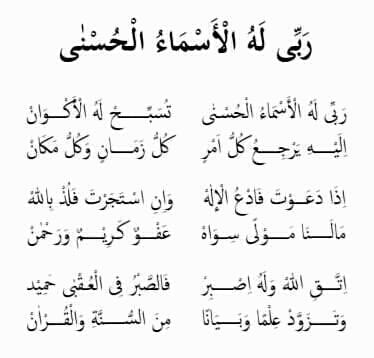 رَبِّى لَهُ الْأَسْمَاءُ الْحُسْنٰى
رَبِّى لَهُ الْأَسْمَاءُ الْحُسْنٰى تُسَبِّحُ لَهُ الْأَكْوَانْ
اِلَيْهِ يَرْجِعُ كُلُّ اَمْرٍ كُلُّ زَمَانٍ وَكُلُّ مَكَانْ
اِذَا دَعَوْتَ فَادْعُ الْإِلٰهْ وَاِنِ اسْتَجَرْتَ فَلُذْ بِاللهْ
مَالَنَا مَوْلًى سِوَاهْ عَفُوٌ كَرِيْمٌ وَرَحْمٰنْ
اِتَّقِ اللهْ وَلَهُ اِصْبِرْ فَالصَّبْرُ فِى الْعُقْبٰى حَمِيْد
وَتَزَوَّدْ عِلْمًا وَبَيَانًا مِنَ السُّنَّةِ وَالْقُرْاٰنْ